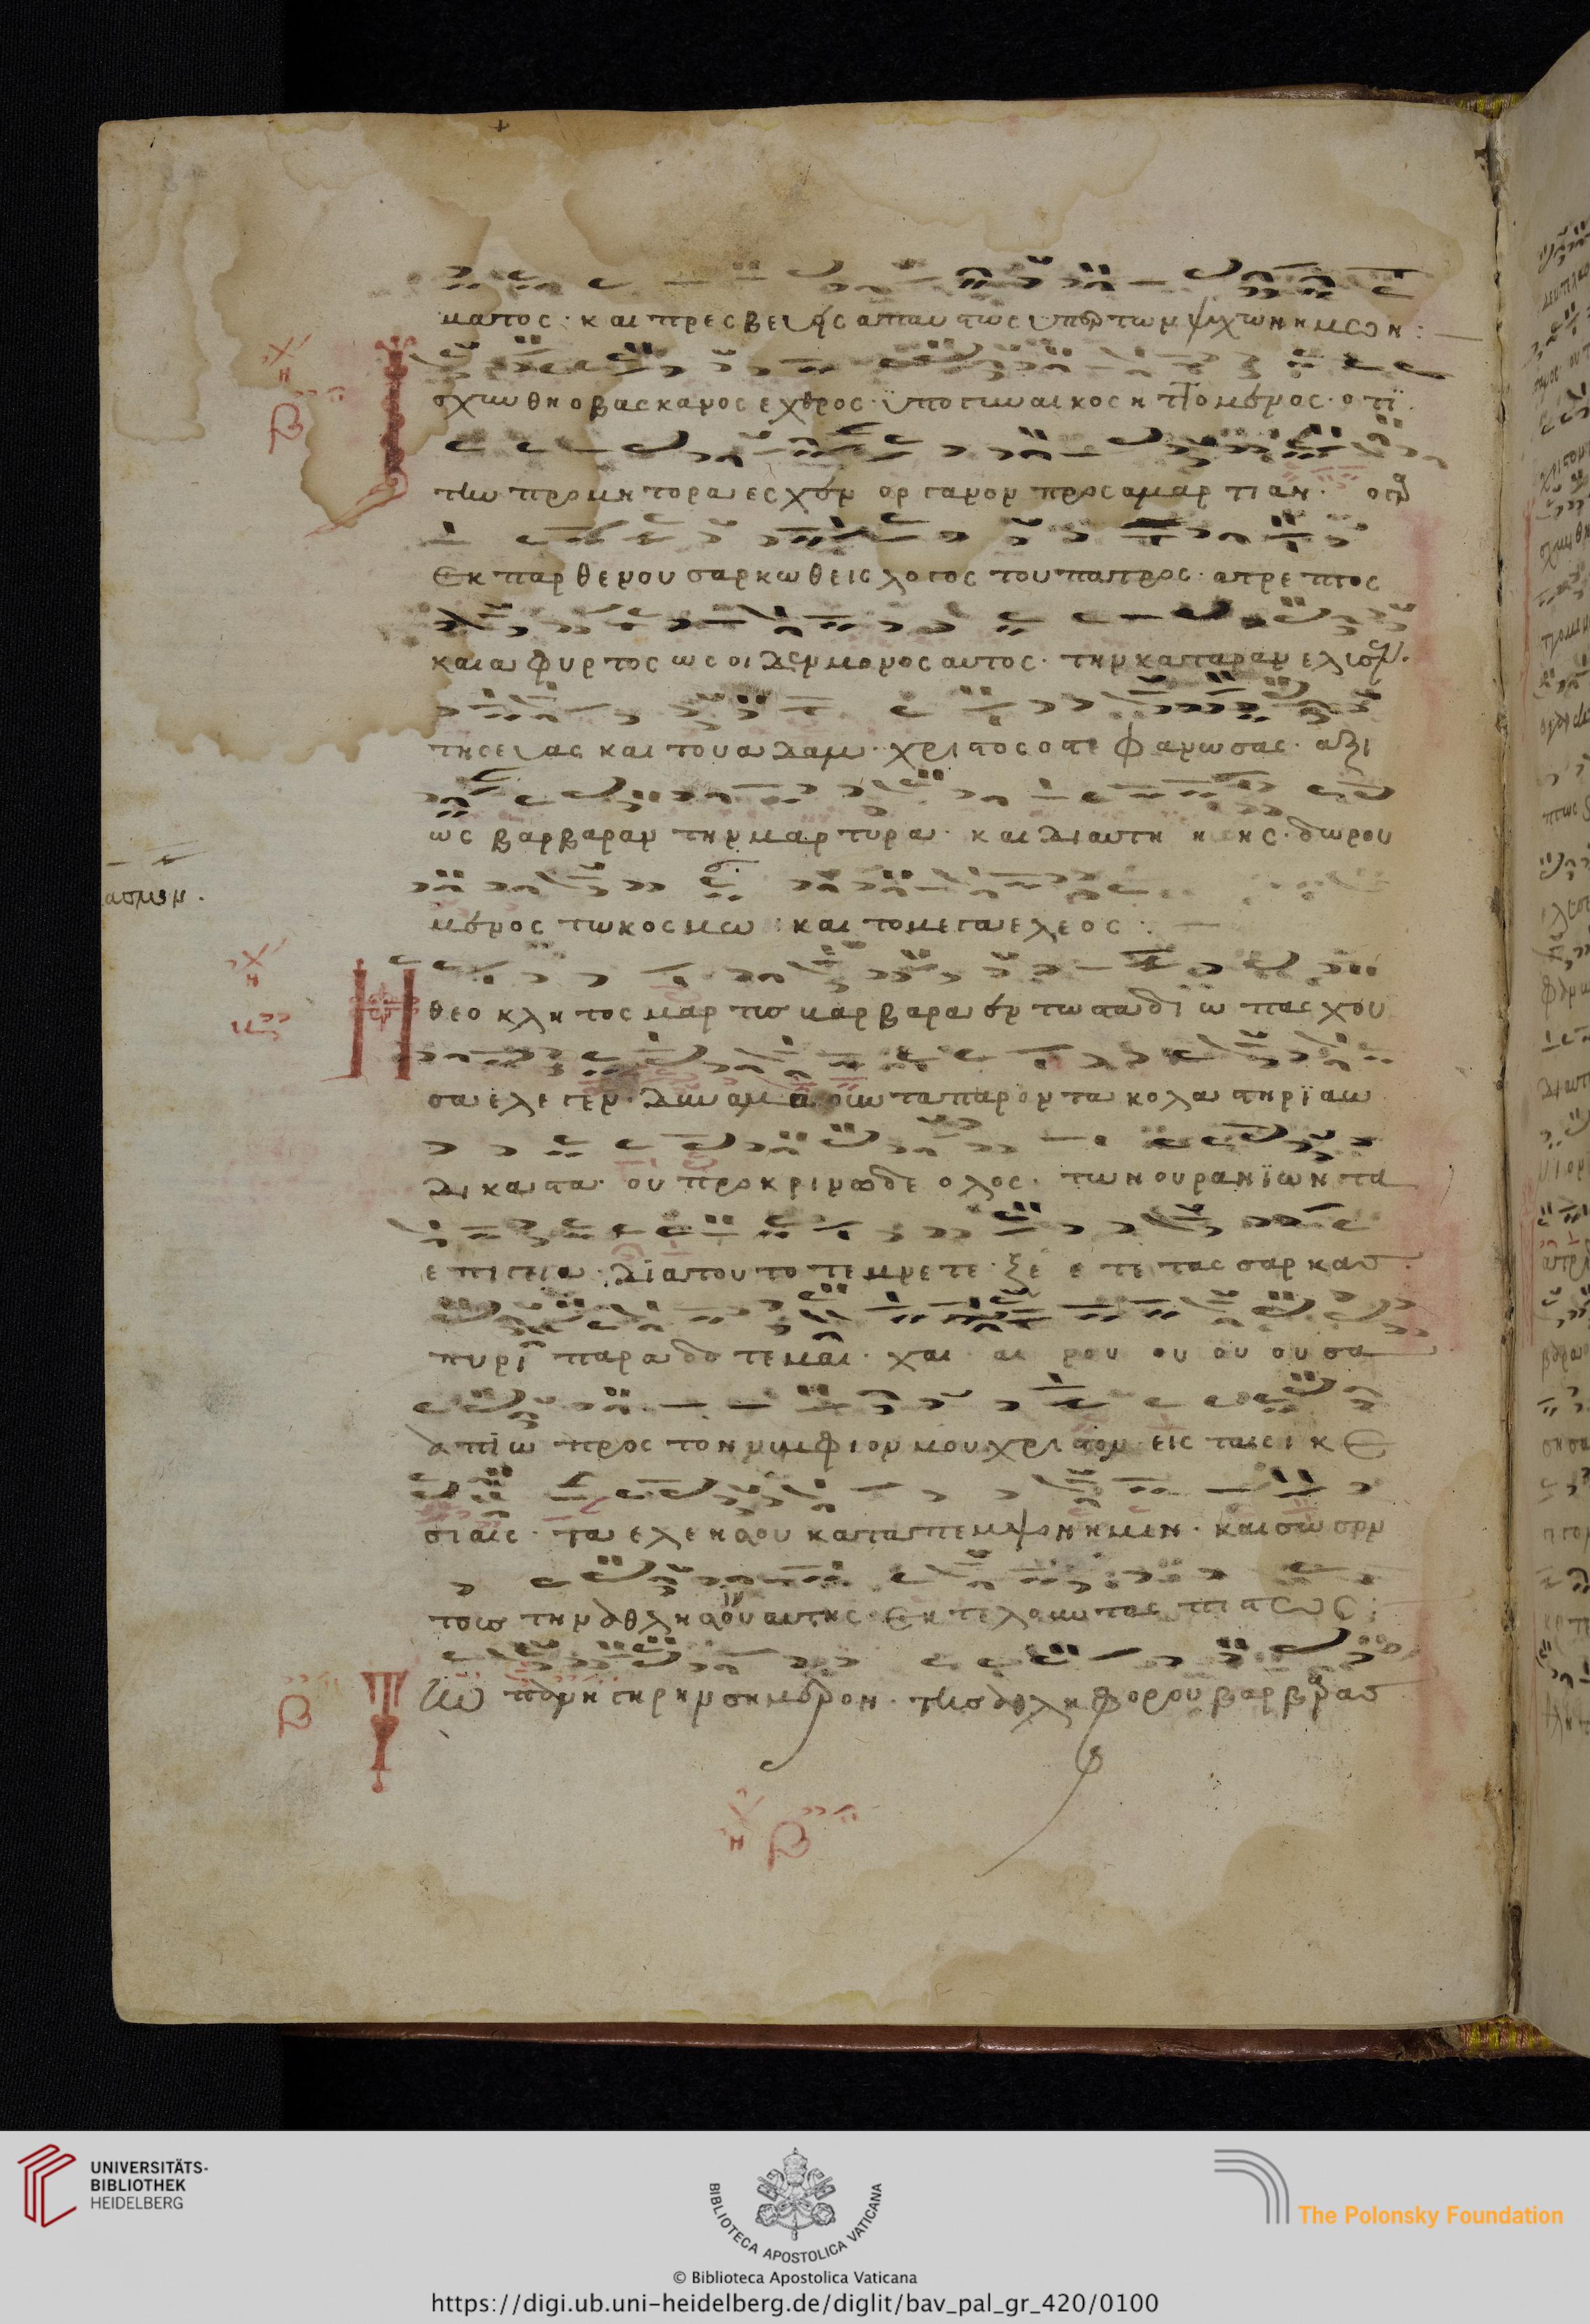 ματος · και πρεσβευεις απαυστως υπερ των ψυχων ημων :
Ισχυνθη ο βασκανος εχθρος · ϋπο γυναικος ηττομενος · οτι
την προμητορα εσχεν οργανον προς αμαρτιαν · ο γαρ
Εκ παρθενου σαρκωθεις λογος του πατρος · ατρεπτος
και αφυρτος ως οιδεν μονος αυτος · την καταραν ελυσεν ·
της ευας και του αδαμ · χριστος ο στεφανωσας · αξι
ως βαρβαραν την μαρτυρα · και δι αυτης · δωρου
ασμον ·
μενος τω κοσμω · και το μεγα ελεος :
Η θεοκλητος μαρτυς βαρβαρα εν τω σταδιω πασχου
σα ελεγεν · δυναστα παροντα κολαστηρια
δικαστα · ου προκρινω δε ολως · των ουρανϊων τα
επιγεια · δια τουτο τεμνετε · ξεετε τας σαρκας ·
πυρι παραδοτε με · χαι αι ρου ου ου ουσα
απιω προς τον νυμφιον μου χριστον · εις ταις ικε
σιαις · τα ελεη σου καταπεμψον ημιν · και σωσον
τους την αθλησιν αυτης Εκτελουντας πιστως :
Την πανηγυριν σημερον · της αθληφορου βαρβαρας
β
UNIVERSITÄTS-
BIBLIOTHEK
HEIDELBERG
BIBLIOTECA APOSTOLICA VATICANA
The Polonsky Foundation
© Biblioteca Apostolica Vaticana
https://digi.ub.uni-heidelberg.de/diglit/bav_pal_gr_420/0100